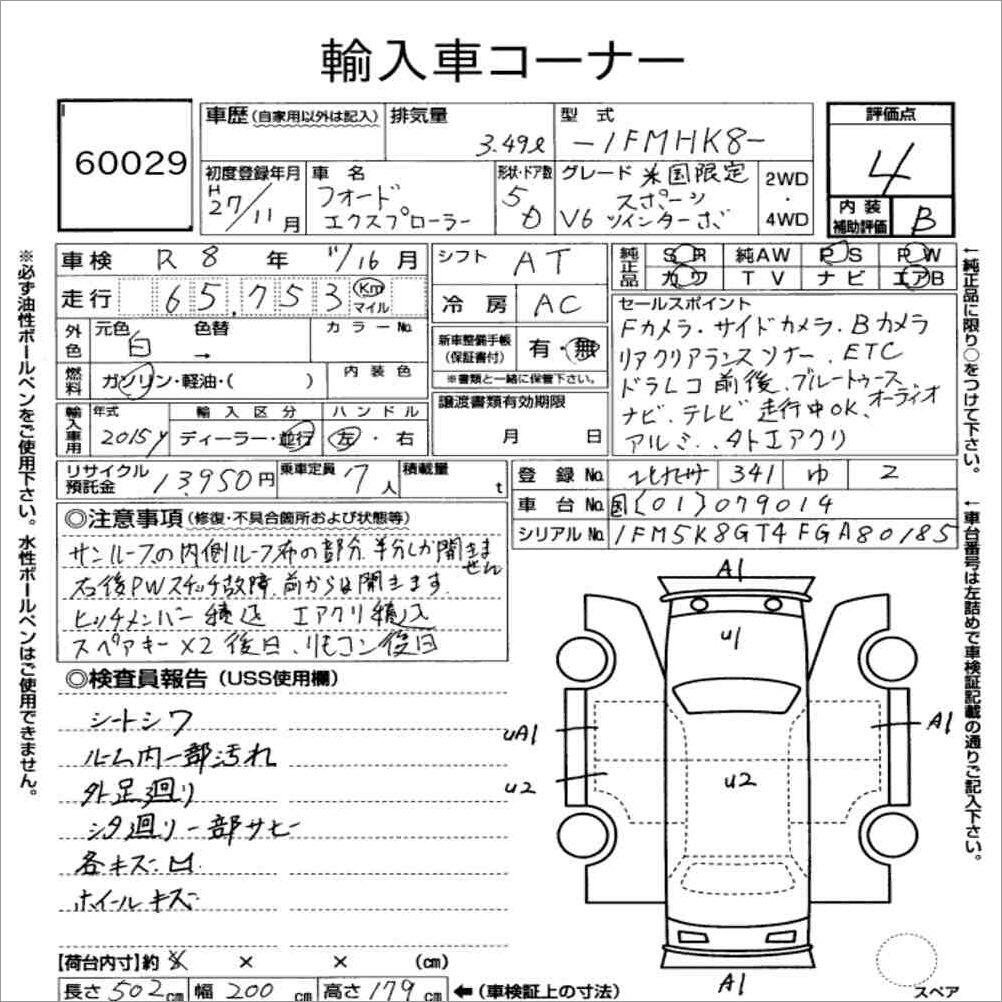 輸入車コーナー
60029
車歴 (自家用以外は記入)
排気量 3.49ℓ
型式 -1FMHK8-
評価点 4
内装補助評価 B
初度登録年月 H27/11月
車名 フォード エクスプローラー
形状・ドア数 5 D
グレード 米国限定
スポーツ
V6 ツインターボ
2WD・4WD
車検 R 8 年 11/16 月
シフト AT
純正品 SR 純AW PS PW
カワ TV ナビ エアB
走行 65,753 Km マイル
冷房 AC
セールスポイント
Fカメラ・サイドカメラ・Bカメラ
リアクリアランスソナー、ETC
ドラレコ前後、ブルートゥースオーディオ
ナビ、テレビ走行中OK
アルミ、外エアクリ
外色 元色 白 色替 → カラーNo.
燃料 ガソリン・軽油・( ) 内装色
新車整備手帳 (保証書付) 有・無
※書類と一緒に保管下さい。
輸入車用 年式 2015y 輸入区分 ディーラー・並行 ハンドル 左・右
譲渡書類有効期限
月 日
リサイクル預託金 13,950円 乗車定員 7人 積載量 t
登録No. 341 ゆ 2
車台No. 国{01}079014
シリアルNo. 1FM5K8GT4FGA80185
◎注意事項 (修復・不具合箇所および状態等)
サンルーフの内側ルーフ布の部分 半分しか開きません
右後PWスイッチ故障、前からは開きます
ヒッチメンバー積込 エアクリ積込
スペアキー×2後日、リモコン後日
◎検査員報告 (USS使用欄)
シートシワ
ルーム内一部汚れ
外足廻り
シタ廻り一部サビ
各キズ凹
ホイールキズ
A1
U1
UA1
A1
U2
U2
A1
【荷台内寸】約 × × × (cm)
長さ 502cm 幅 200cm 高さ 179cm ←(車検証上の寸法)
スペア
※必ず油性ボールペンをご使用下さい。水性ボールペンはご使用できません。
←純正品に限り○をつけて下さい。
←車台番号は左詰めで車検証記載の通りご記入下さい。